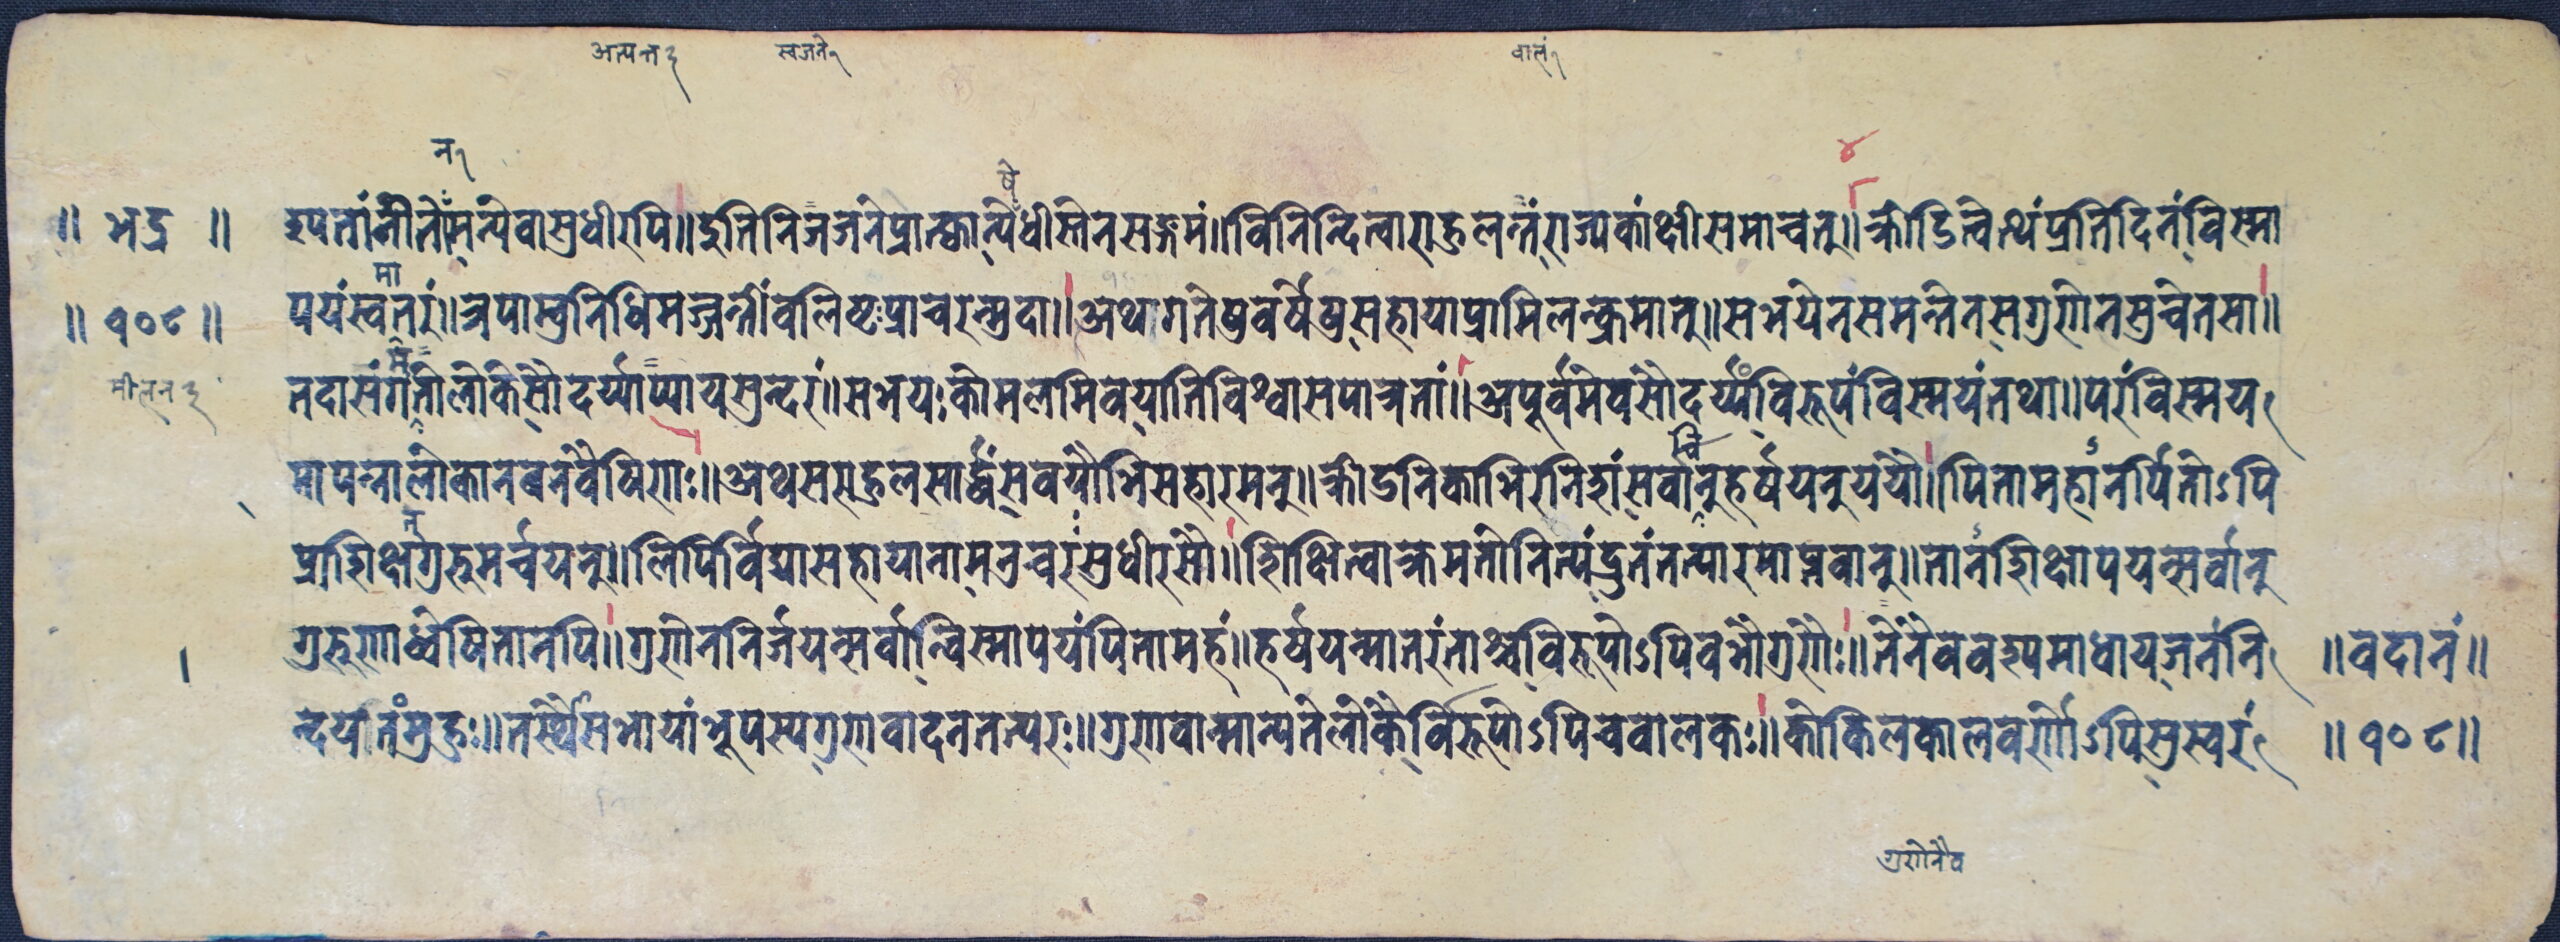 अत्यन्त द स्वजने१ वालं१
न१
षे
॥ भद्र ॥ दृपतांनीतोमन्येवासुधीरपि॥ इतिनिजजनेप्रोत्कान्येधीस्तेनसङ्गमं॥ विनिन्दित्वाराहुलन्तंराज्यकांक्षीसमाचतु॥ क्रीडित्वेत्थंप्रतिदिनंविस्मा
मा
॥ १०८ ॥ पयंस्वतरं॥ त्रपाम्बुनिधिमज्जन्तींवलिष्टःप्राचरन्मुदा॥ अथागतेषुवर्षेषुसहायाप्रामिलन्क्रमातु॥ सभयेनसमन्तेनसगुणेनसुचेतसा॥
मीलन द तदासंगतोलोकेसौदर्य्याप्यायसुन्दरं॥ सभयःकोमलमिवयातिविश्वासपात्रतां॥ अपूर्वमेवसौदर्य्यंविरूपंविस्मयंतथा॥ परंविस्मय
मापन्नालोकानबनवैषिणाः॥ अथसराहुलसार्द्धंसवयोभिसहारमतु॥ क्रीडनिकाभिरनिशंसर्वानुहर्षयनुययौ॥ पितामहानर्पितोऽपि
न
प्राशिक्षगुरुमर्चयनु॥ लिपिर्विद्यासहायानामनुचरंसुधीरसौ॥ शिक्षित्वाक्रमतोनित्यंद्रुतंतत्पारमाप्नवानु॥ तानशिक्षापयन्सर्वानु
गुरूणाध्येषितानपि॥ गुणेननिर्जयन्सर्वान्विस्मापयंपितामहं॥ हर्षयन्मातरंताश्चविरूपोऽपिवभौगुणैः॥ तेनैववदृपमाधायजननि ॥ वदानं॥
न्देयंतंमुहुः॥ तस्थैसभायांभूपस्यगुणवादनतत्परः॥ गुणवान्मान्यतेलोकैर्विरूपोऽपिचवालकः॥ कोकिलकालवर्णोऽपिसुस्वरं ॥ १०८॥
गुणेनैव